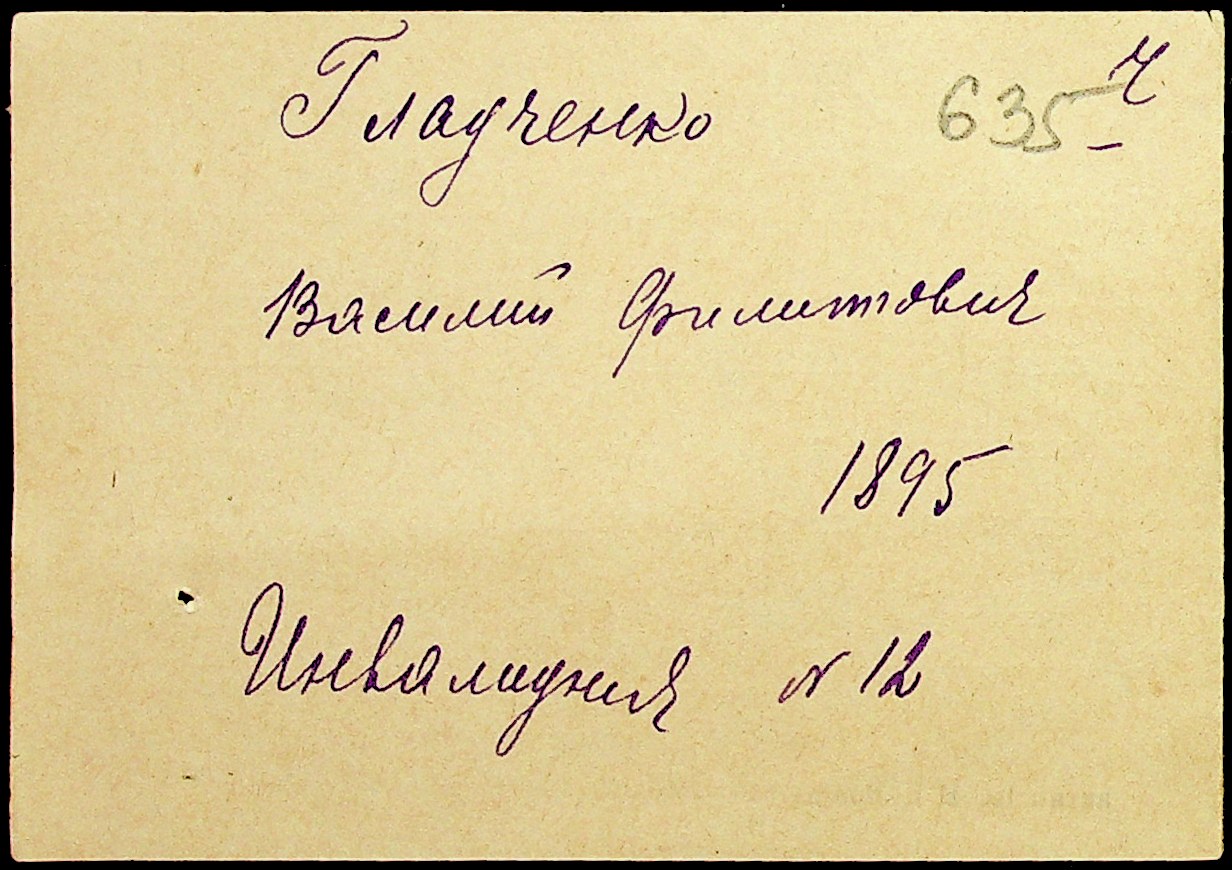 Гладченко 635 Ч
Василий Филиппович
1895
Инвалидная № 12